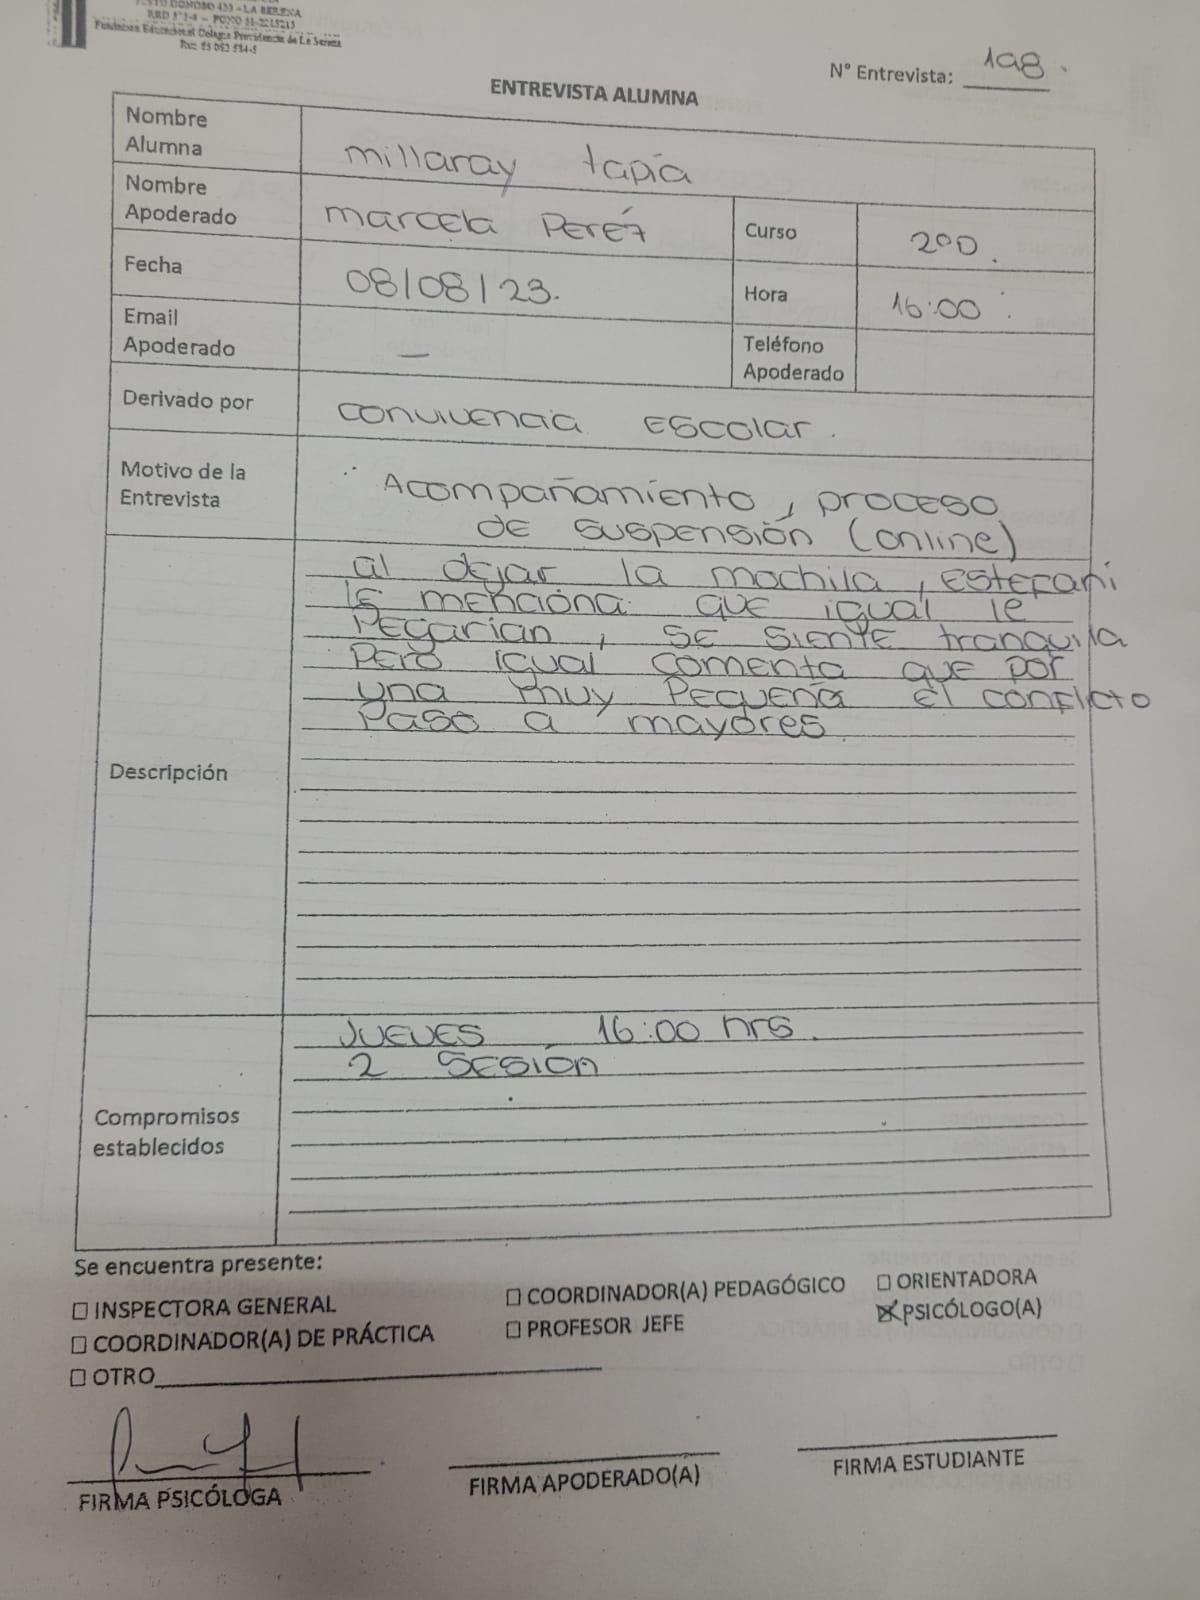 DONOSO 453 - LA SERENA
FONO 51-2215215
Fundacion Educacional Colegio Providencia de La Serena
N° Entrevista: 198.
ENTREVISTA ALUMNA
Nombre Alumna millaray tapia
Nombre Apoderado marcela Peréz Curso 2°D.
Fecha 08/08/23. Hora 16:00
Email Apoderado — Teléfono Apoderado
Derivado por convivencia Escolar.
Motivo de la Entrevista Acompañamiento, proceso
de suspensión (online)
Descripción
al dejar la mochila, Estefani
le menciona que igual le
Pegarian, se siente tranquila
Pero igual comenta que por
una muy Pequeña el conflicto
Paso a mayores.
Compromisos establecidos
Jueves 16:00 hrs.
2 Sesión
Se encuentra presente:
☐ INSPECTORA GENERAL ☐ COORDINADOR(A) PEDAGÓGICO ☐ ORIENTADORA
☐ COORDINADOR(A) DE PRÁCTICA ☐ PROFESOR JEFE ☒ PSICÓLOGO(A)
☐ OTRO
FIRMA PSICÓLOGA FIRMA APODERADO(A) FIRMA ESTUDIANTE